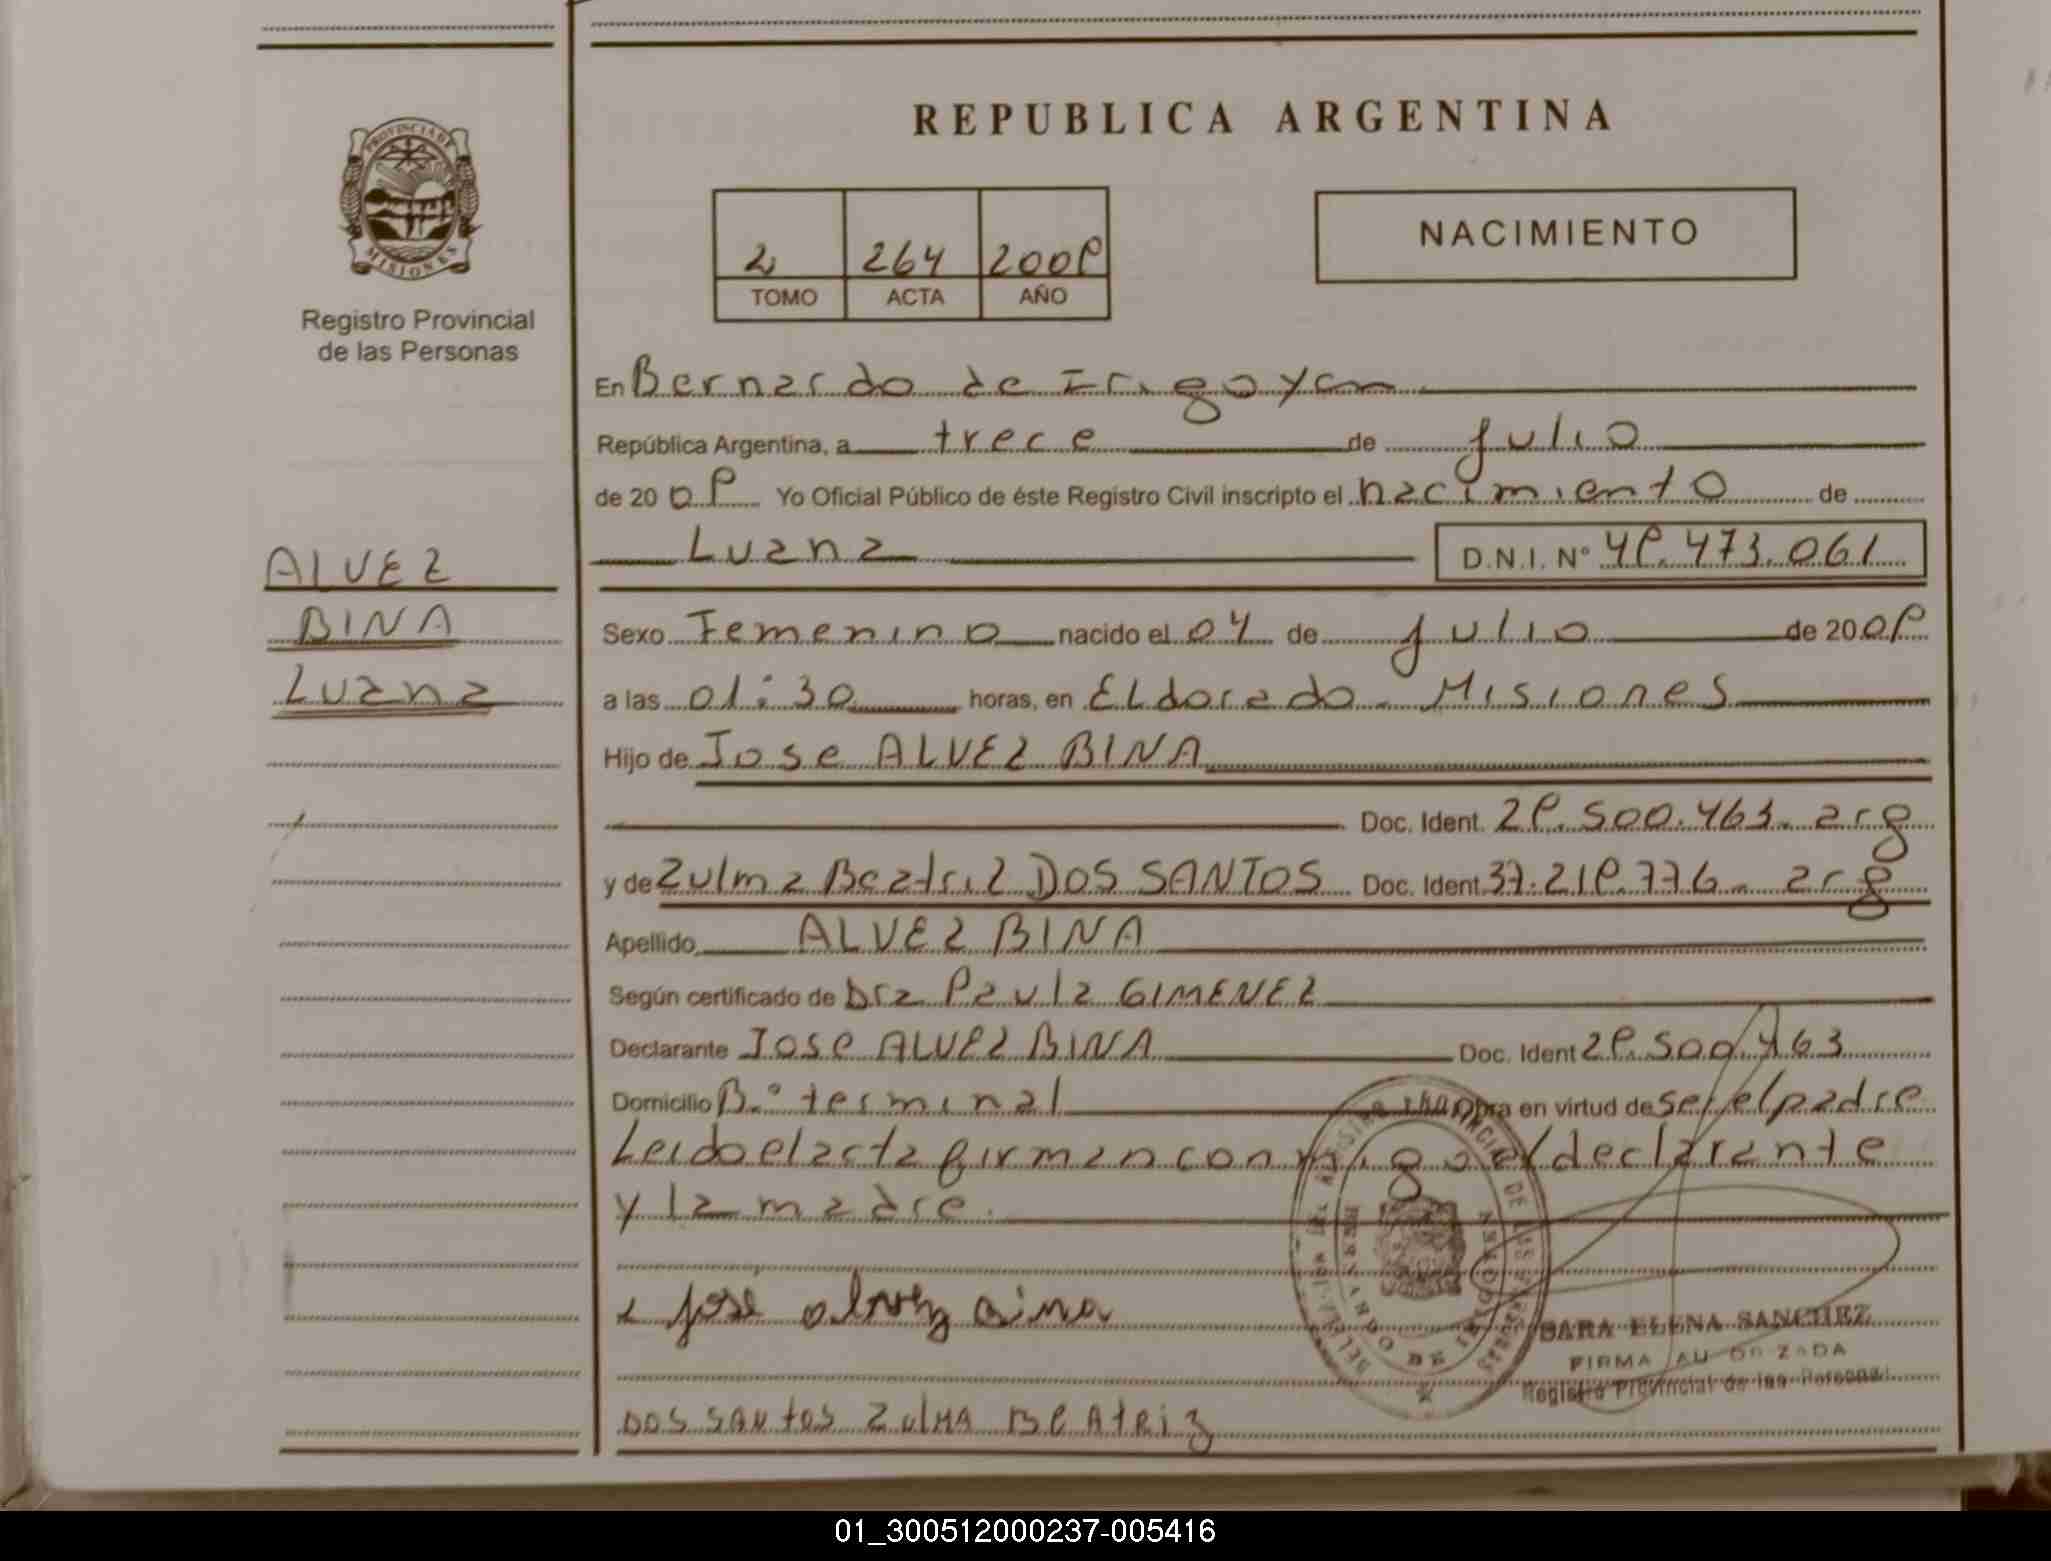 REPUBLICA ARGENTINA
PROVINCIA DE
MISIONES
Registro Provincial
de las Personas
2 264 2008
TOMO ACTA AÑO
NACIMIENTO
ALVEZ
BINA
Luana
En Bernardo de Irigoyen
República Argentina, a trece de julio
de 20 08 Yo Oficial Público de éste Registro Civil inscripto el nacimiento de
Luana D.N.I. N° 48.473.061
Sexo Femenino nacido el 04 de julio de 20 08
a las 01:30 horas, en ELdorado - Misiones
Hijo de Jose ALVEZ BINA
Doc. Ident. 28.500.463 - arg
y de Zulma Beatriz DOS SANTOS Doc. Ident. 37.218.776 - arg
Apellido ALVEZ BINA
Según certificado de Dra Paula GIMENEZ
Declarante Jose ALVEZ BINA Doc. Ident 28.500.463
Domicilio B.° terminal obra en virtud de ser el padre
Leido el acta firman conmigo el declarante
y la madre.
José alvez Bina
SARA ELENA SANCHEZ
FIRMA AUTORIZADA
Registro Provincial de las Personas
DOS SANtOS ZulMA BeAtRiz
01_300512000237-005416